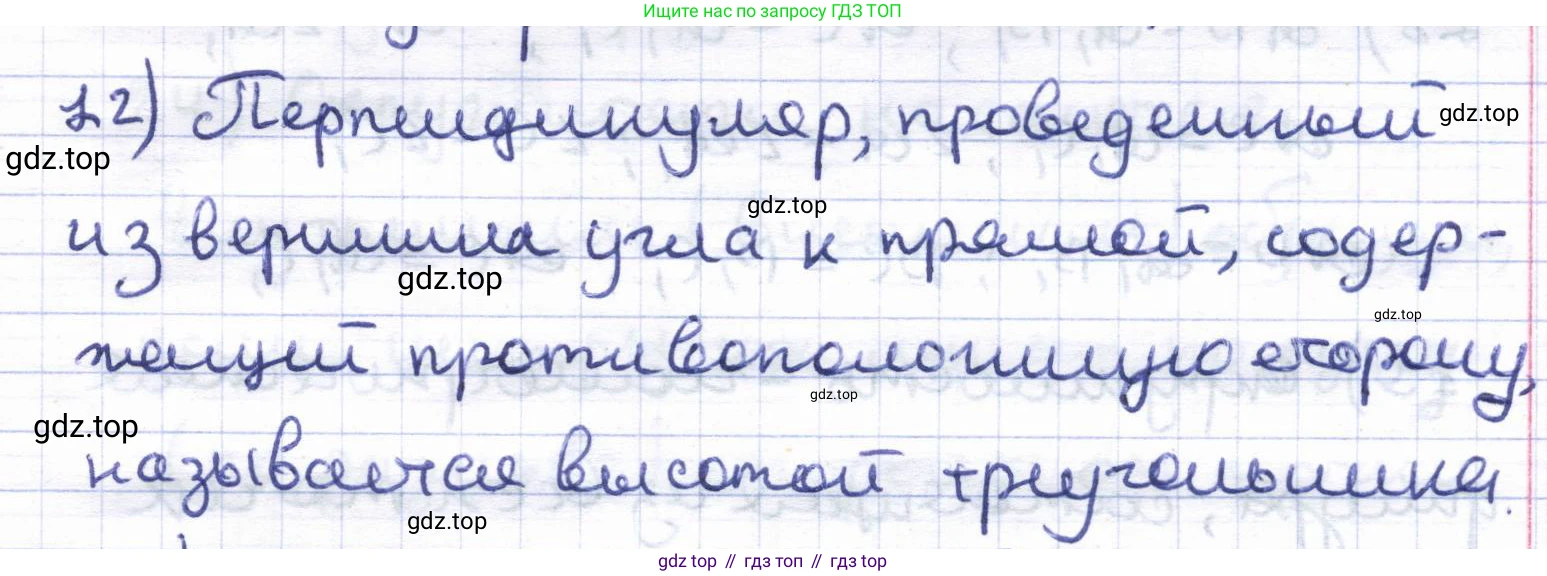 Ищите нас по запросу ГДЗ ТОП
12) Перпендикуляр, проведенный
gdz.top
gdz.top
из вершина угла к прямой, содер-
gdz.top
gdz.top
жащий противоположную сторону,
gdz.top
gdz.top
gdz.top
называется высотой треугольника.
gdz.top
gdz top // гдз топ // гдз top